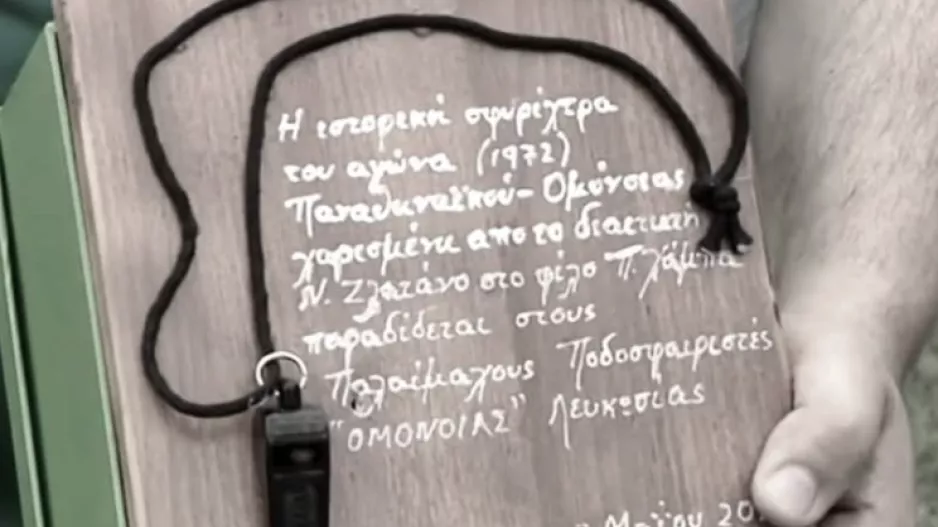 Η ιστορική σφυρίχτρα
του αγώνα (1972)
Παναθηναϊκού - Ομόνοιας
χαρισμένη απο το διαιτητή
Ν. Ζλατάνο στο φίλο Π. Λάμπα
παραδίδεται στους
Παλαίμαχους Ποδοσφαιριστές
"ΟΜΟΝΟΙΑΣ" Λευκωσίας
Μαΐου